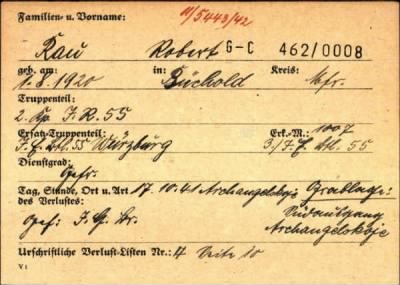 Familien- u. Vorname: 11/5443/42
Rau Robert G-C 462/0008
geb. am: in: Kreis:
1.8.1920 Büchold Mfr.
Truppenteil:
2. Kp. J.R. 55
Ersatz-Truppenteil: Erk.-M.: 1007
Würzburg
Dienstgrad:
Gefr.
Tag, Stunde, Ort u. Art 17.10.41 Archangelskoje Grablage:
des Verlustes: Südausgang
gef: Archangelskoje
Urschriftliche Verlust-Listen Nr.: 4 Seite 10
V 1